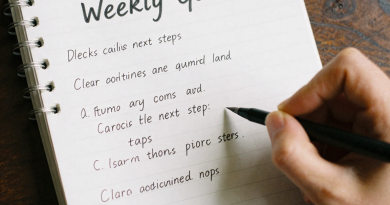 Weekly
Dlecks cailis next steps
Clear ooritines are qumrd land
a. Ftumo ary coms avd.
Carocis tle next step:
taps
C. Isarm thons piorc sters.
Clara aodicuined nops